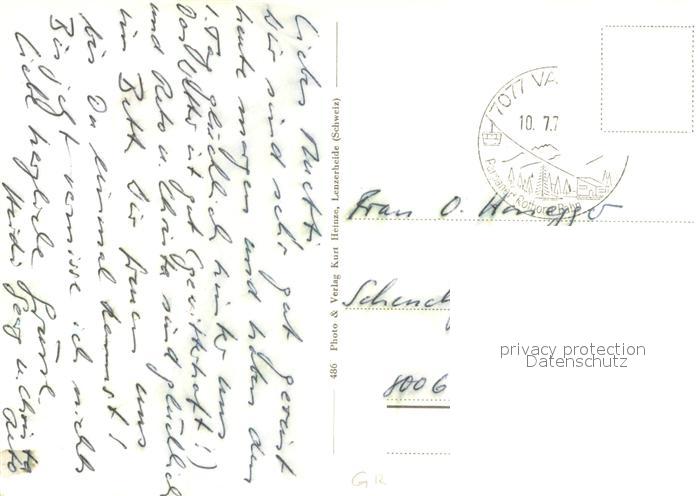 Liebs Muetti
Wir sind sehr gut gereist
heute morgen und haben den
1. Tag glücklich hinter uns
Das Wetter ist gut (gewitterhaft!)
und Reto u. Christa sind glücklich
im Bett. Wir freuen uns
bis Du einmal kommst!
Bis jetzt vermisse ich nichts
Liebe herzliche Grüsse
Heidi u. Christa
Reto
486 Photo & Verlag Kurt Heinze, Lenzerheide (Schweiz)
7077 VA
10. 7.7
Parpaner Rothorn-Bahn
Frau O. Honegger
Scheuch
8006
privacy protection
Datenschutz
GR